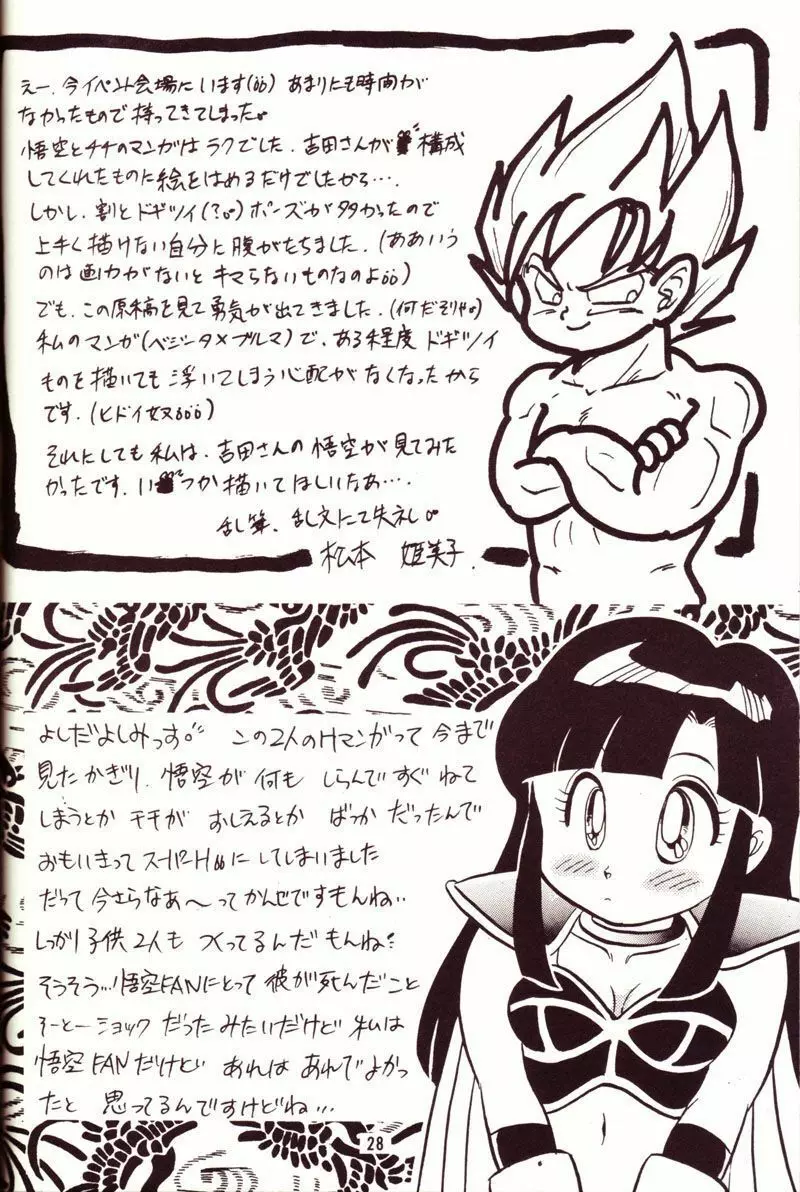 えー、今イベント会場にいます(öö) あまりにも時間が
なかったもので持ってきてしまった。
悟空とチチのマンガはラクでした。吉田さんが 構成
してくれたものに絵をはめるだけでしたから‥‥。
しかし、割とドギツイ(?。)ポーズが多かったので
上手く描けない自分に腹がたちました。(ああいう
のは画力がないとキマらないものなのよöö)
でも、この原稿を見て勇気が出てきました。(何だそりゃ。)
私のマンガ(ベジータ×ブルマ)で、ある程度 ドギツイ
ものを描いても浮いてしまう心配がなくなったから
です。(ヒドイ奴ööö)
それにしても私は、吉田さんの悟空が見てみた
かったです。いつか描いてほしいなぁ‥‥。
乱筆、乱文にて失礼。
松本 姫美子。
よしだよしみっす。 この2人のHマンガって今まで
見たかぎり、悟空が何も しらんですぐねて
しまうとか チチが おしえるとか ばっか だったんで
おもいきって スーパーHöö にしてしまいました
だって今さらなあ〜ってかんじですもんね‥
しっかり子供2人も つくってるんだもんね?
そうそう‥!悟空FANにとって彼が死んだこと
そーとーショックだったみたいだけど 私は
悟空FANだけど あれは あれでよかっ
たと 思ってるんですけどね‥‥
28